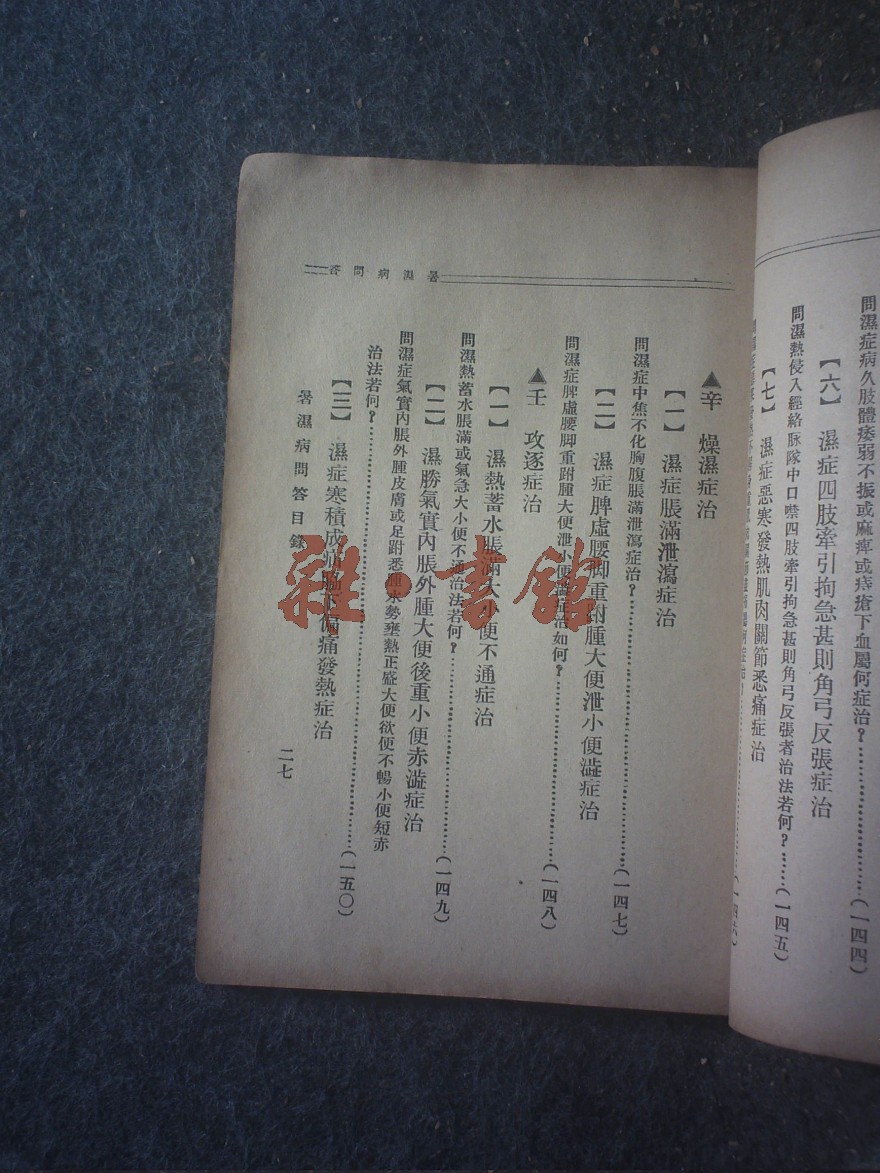 問濕症病久肢體痿弱不振或麻痺或痔瘡下血屬何症治？……(一四四)
【六】 濕症四肢牽引拘急甚則角弓反張症治
問濕熱侵入經絡脈隧中口噤四肢牽引拘急甚則角弓反張者治法若何？……(一四五)
【七】 濕症惡寒發熱肌肉關節悉痛症治
何症治？……(一四六)
暑濕病問答
▲辛 燥濕症治
【一】 濕症脹滿泄瀉症治
問濕症中焦不化胸腹脹滿泄瀉症治？……(一四七)
【二】 濕症脾虛腰脚重跗腫大便泄小便澁症治
問濕症脾虛腰脚重跗腫大便泄小便澁症治如何？……(一四八)
▲壬 攻逐症治
【一】 濕熱蓄水脹滿大小便不通症治
問濕熱蓄水脹滿或氣急大小便不通治法若何？……(一四九)
【二】 濕勝氣實內脹外腫大便後重小便赤澁症治
問濕症氣實內脹外腫皮膚或足跗悉腫水勢壅熱正盛大便欲便不暢小便短赤
治法若何？……(一五〇)
【三】 濕症寒積成痛脇下偏痛發熱症治
暑濕病問答目錄
二七
雜·書館